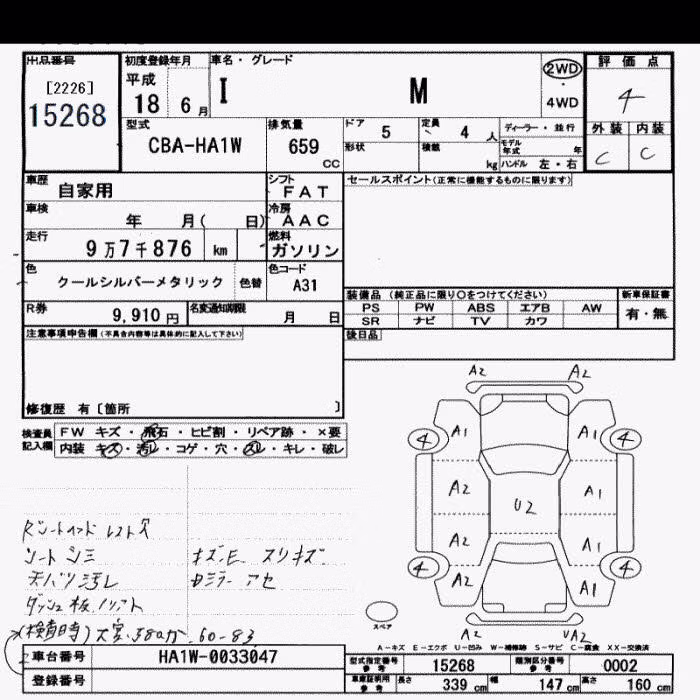 出品番号 初度登録年月 車名・グレード 評価点
[2226] 平成 2WD
15268 18 6月 I M 4WD 4
型式 排気量 ドア 5 定員 4 人 ディーラー・並行 外装 内装
CBA-HA1W 659 CC 形状 積載 kg モデル年式 年 C C
ハンドル 左・右
車歴 自家用 シフト FAT セールスポイント(正常に機能するものに限ります)
車検 年 月( 日) 冷房 AAC
走行 9万7千876 km 燃料 ガソリン
色 クールシルバーメタリック 色替 色コード A31
装備品 (純正品に限り○をつけてください) 新車保証書
R券 9,910 円 名変通知期限 月 日 PS PW ABS エアB AW 有・無
SR ナビ TV カワ
注意事項申告欄(不具合内容等は具体的に記入して下さい) 後日品
修復歴 有〔箇所 〕
検査員記入欄 FW キズ・飛石・ヒビ割・リペア跡・×要
内装 キズ・汚レ・コゲ・穴・スレ・キレ・破レ
A2 A2
4 A1 A1 4
A2 U2 A1
A2 A1
4 A2 A1 4
スペア A2 UA2
シートシミ キズ、E スリキズ
天バリ汚レ Dミラーアセ
(検査時)
A-キズ E-エクボ U-凹み W-補修跡 S-サビ C-腐食 XX-交換済
車台番号 HA1W-0033047 型式指定番号 参考 15268 類別区分番号 参考 0002
登録番号 車庫証明用 参考 長さ 339 cm 幅 147 cm 高さ 160 cm